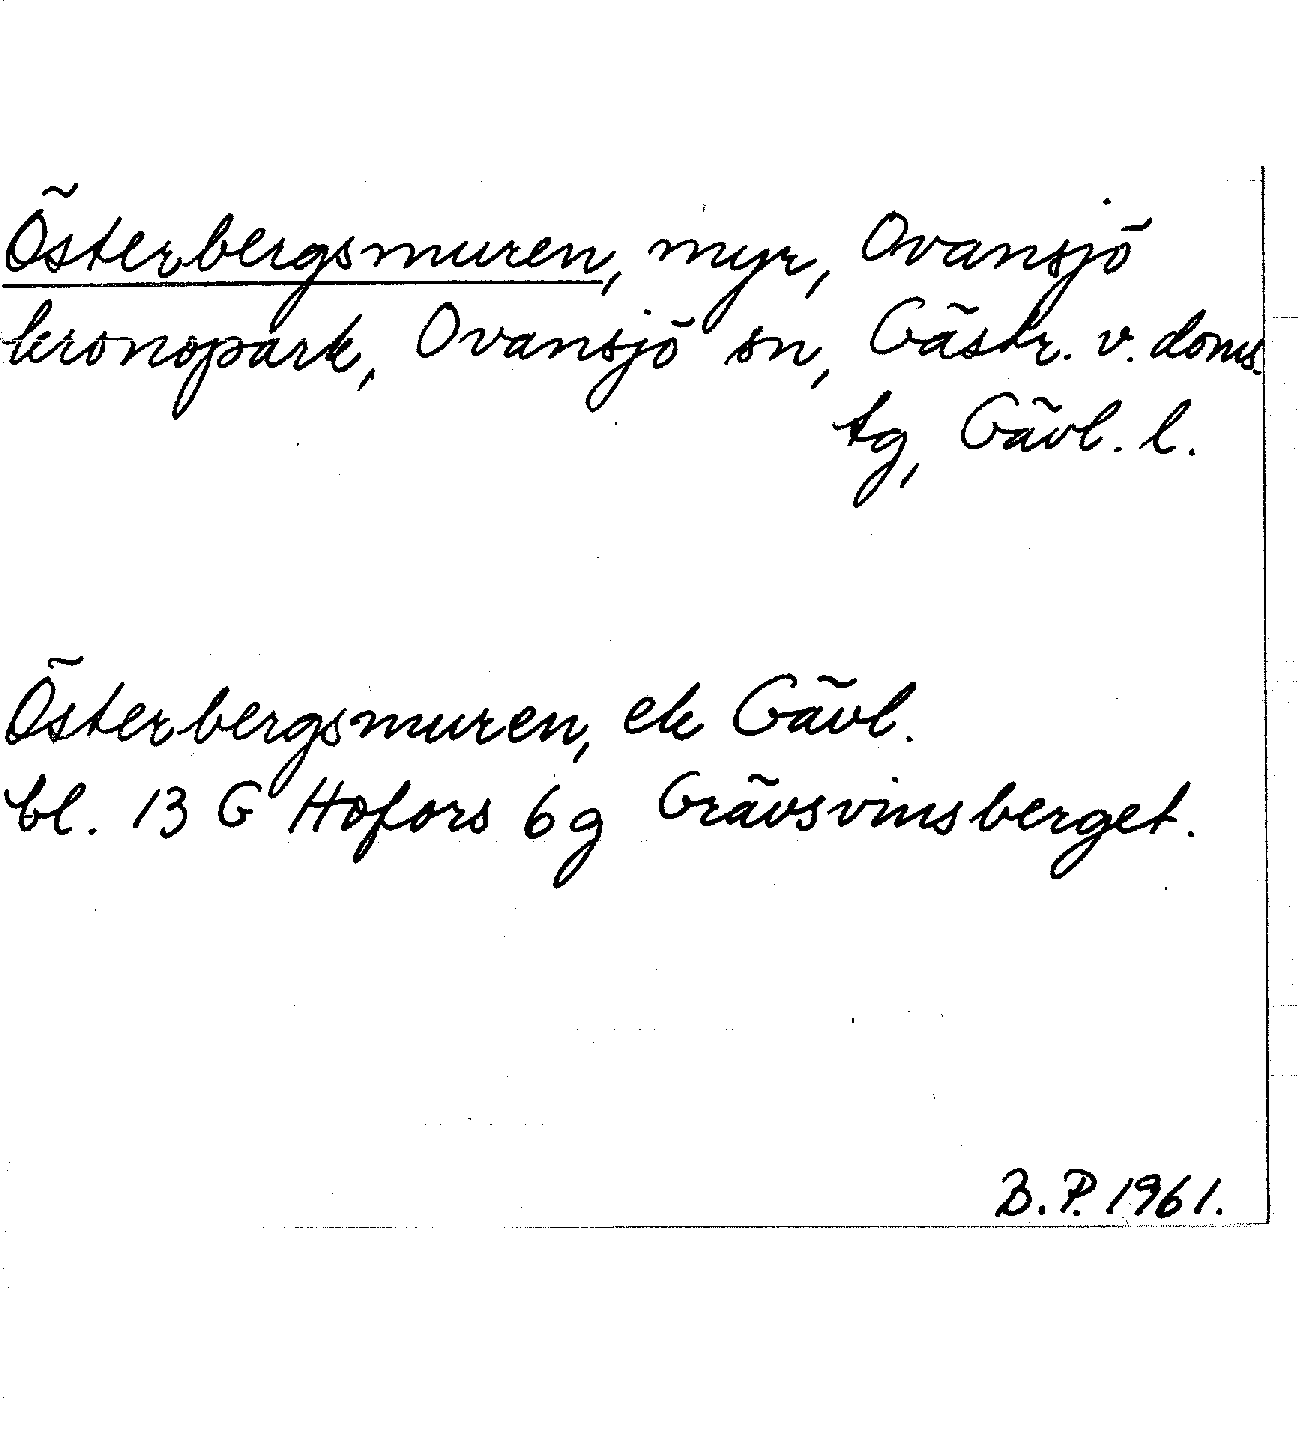 Österbergsmuren, myr, Ovansjö
kronopark, Ovansjö sn, Gästr. v. doms.
tg, Gävl. l.
Österbergsmuren, ek Gävl.
bl. 13 G Hofors 6 g Grävsvinsberget.
B. P. 1961.